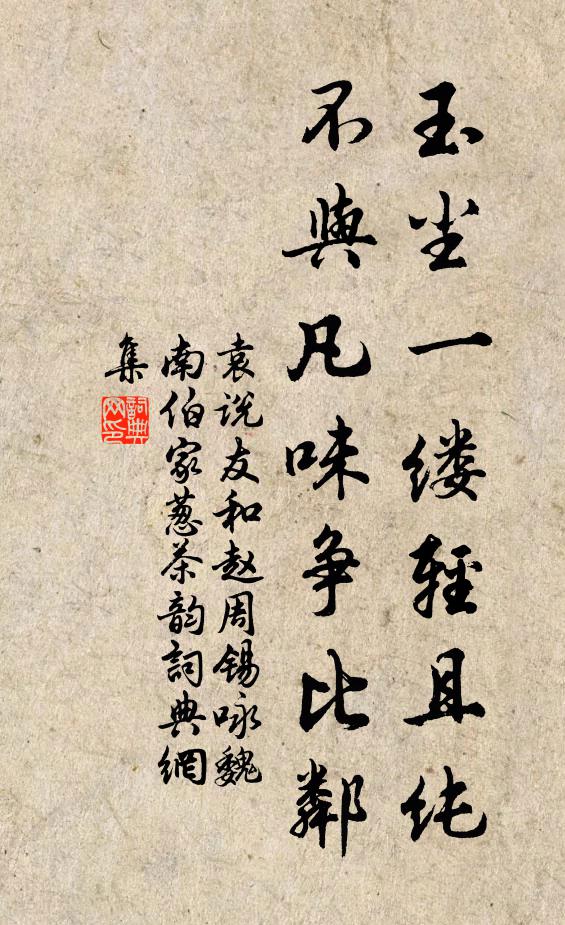 玉尘一缕輕且纯
不與凡味争比鄰
袁说友和赵周锡咏魏
南伯家葱茶韵詞典網
集
詞典
网印